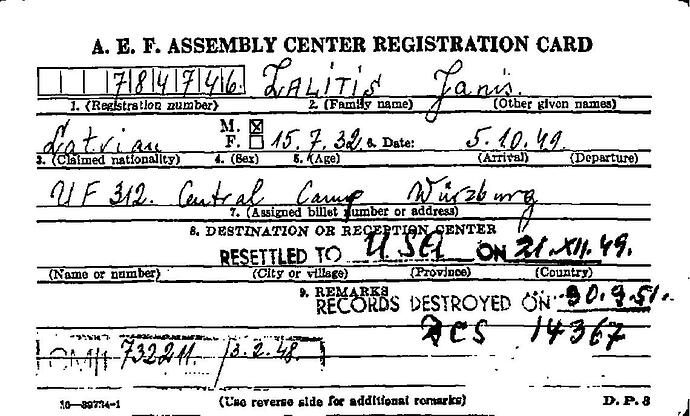 A. E. F. ASSEMBLY CENTER REGISTRATION CARD
784746. ZALITIS Janis.
1. (Registration number) 2. (Family name) (Other given names)
Latvian M. ☒ F. ☐ 15.7.32. 6. Date: 5.10.49.
3. (Claimed nationality) 4. (Sex) 5. (Age) (Arrival) (Departure)
UF 312. Central Camp Würzburg
7. (Assigned billet number or address)
8. DESTINATION OR RECEPTION CENTER
RESETTLED TO USA ON 21.XII.49.
(Name or number) (City or village) (Province) (Country)
9. REMARKS
RECORDS DESTROYED ON 30.9.51.
14367
732211 3.2.48.
16—39734-1 (Use reverse side for additional remarks) D. P. 3